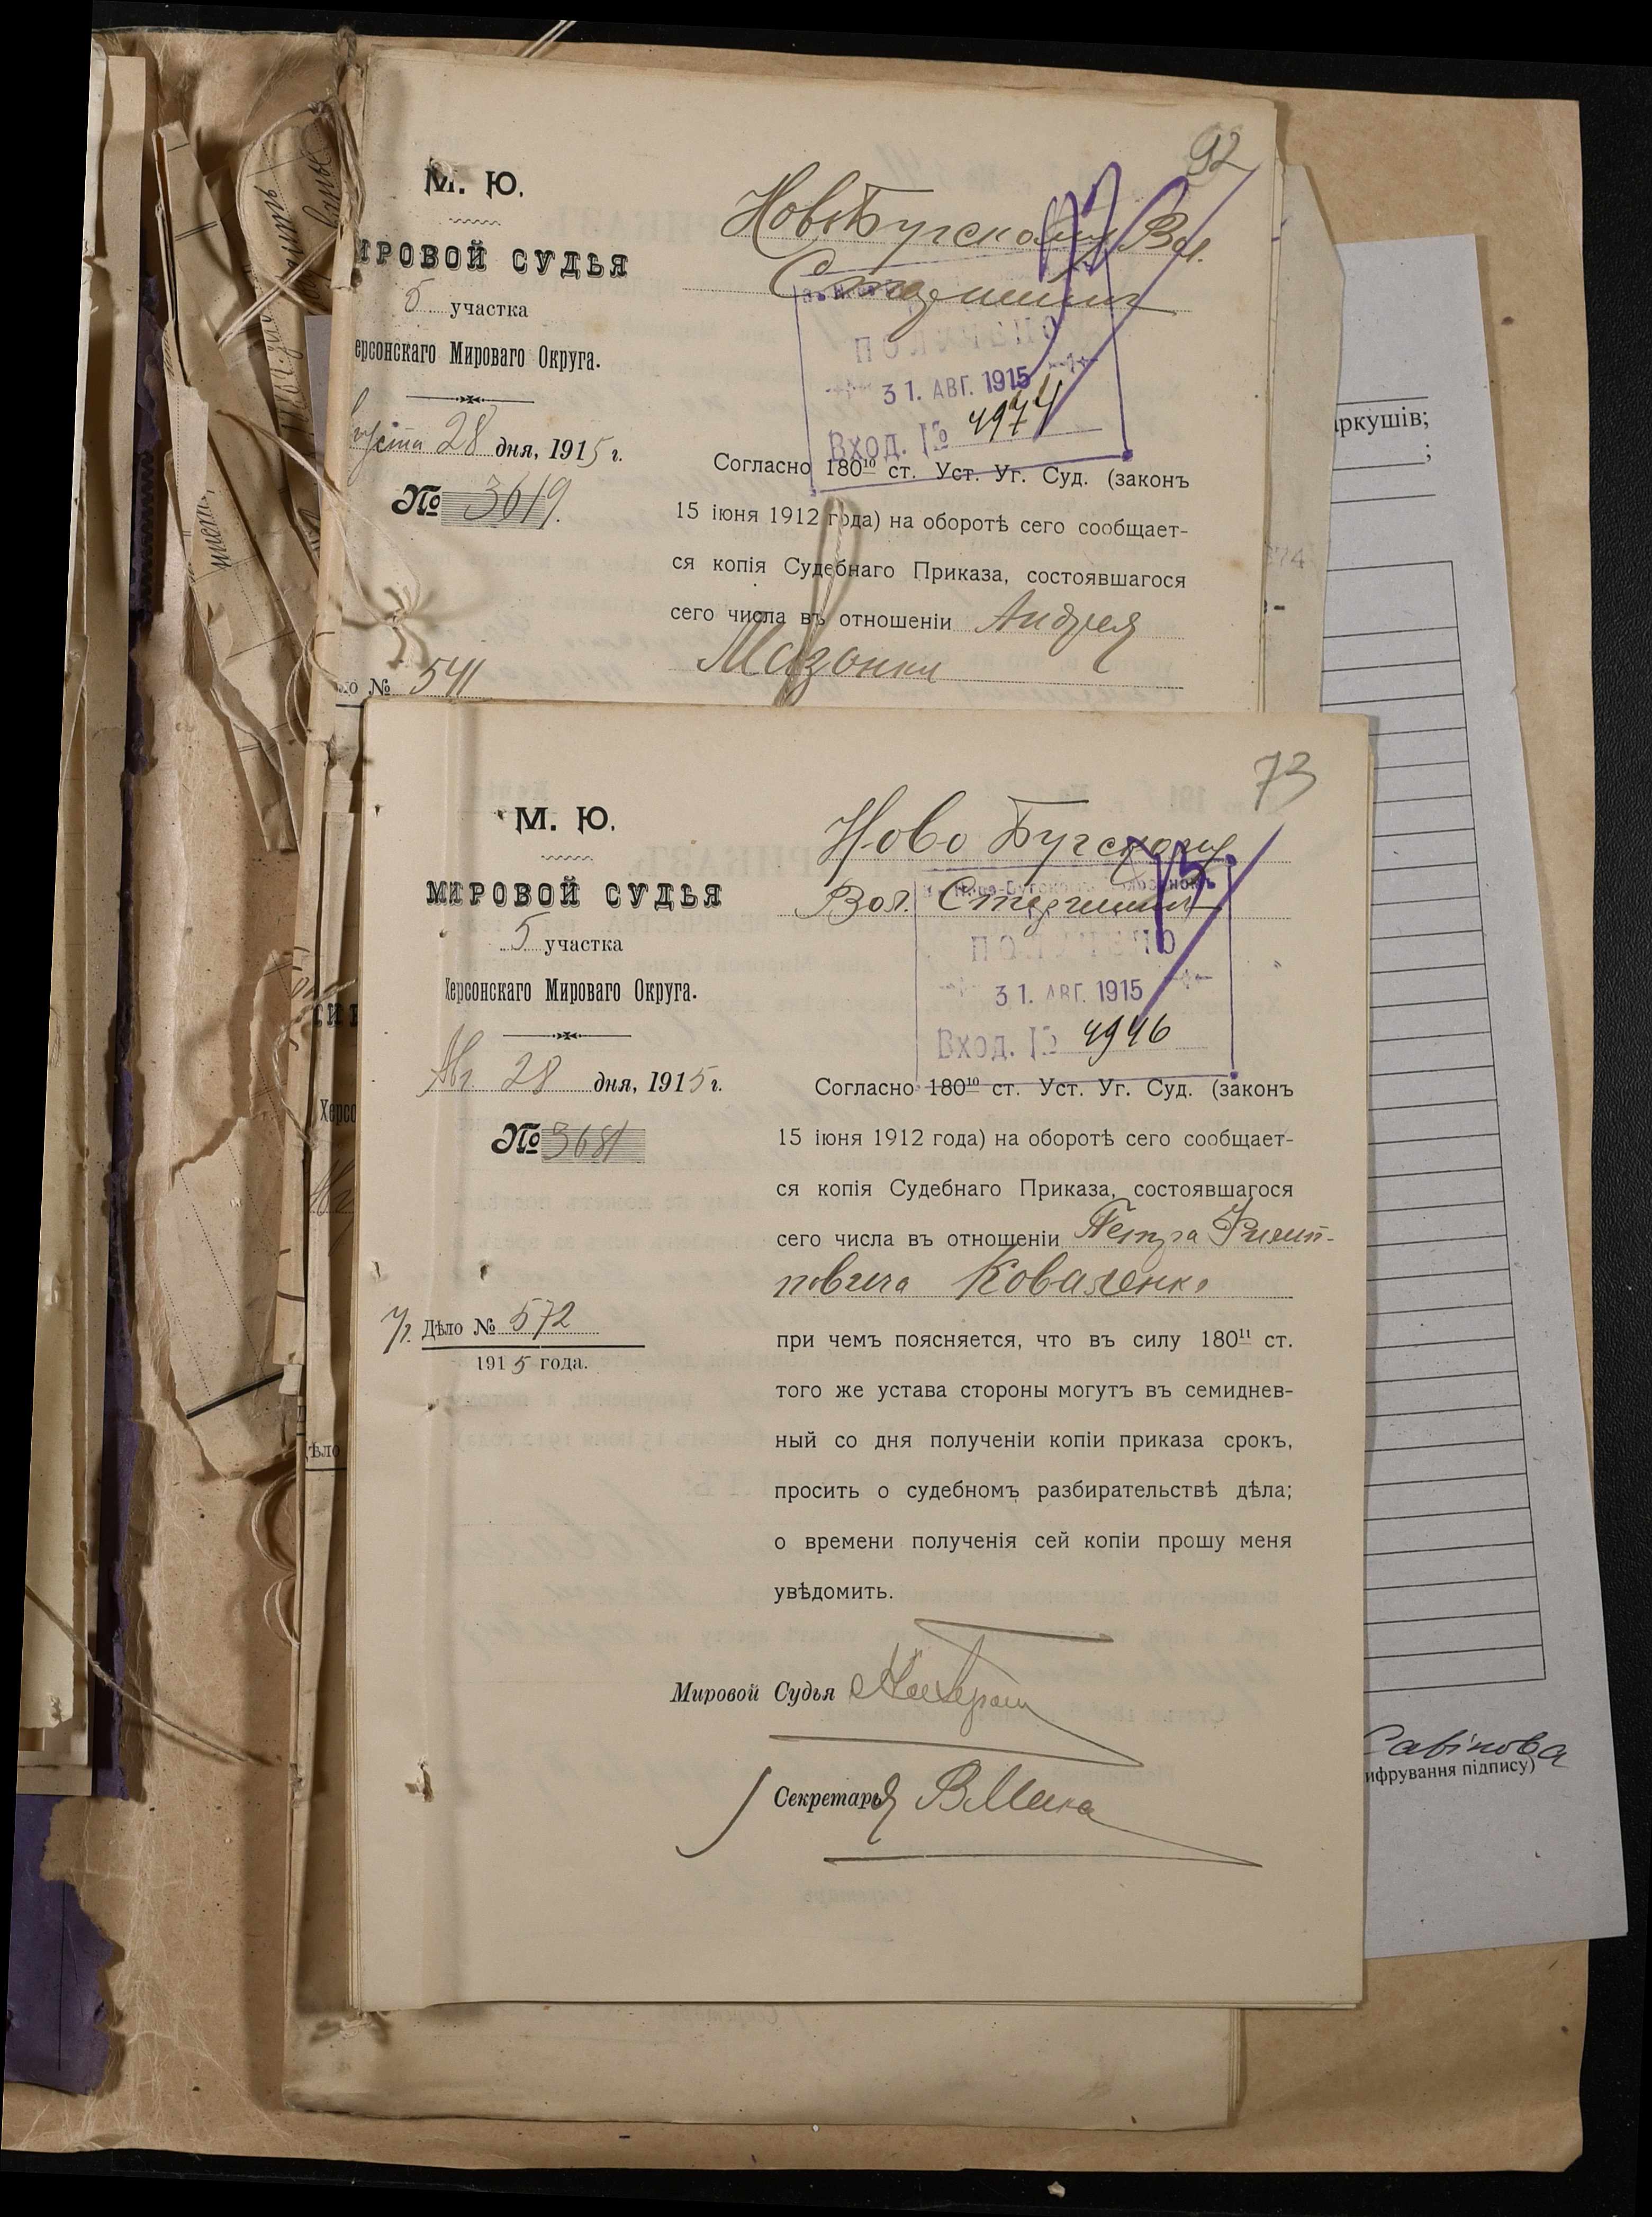 92
М. Ю.
МИРОВОЙ СУДЬЯ
5 участка
ерсонскаго Мироваго Округа.
28 дня, 1915 г.
№ 3619.
но № 541
НовоБугскому Вол.
Старшинѣ
ПОЛУЧЕНО
31. АВГ. 1915
Вход. № 4974
Согласно 180¹⁰ ст. Уст. Уг. Суд. (законъ
15 іюня 1912 года) на оборотѣ сего сообщает-
ся копія Судебнаго Приказа, состоявшагося
сего числа въ отношеніи Андрея
Мазонки
73
М. Ю.
МИРОВОЙ СУДЬЯ
5 участка
Херсонскаго Мироваго Округа.
Авг 28 дня, 1915 г.
№ 3681
Дѣло № 572
1915 года.
Ново Бугскому
Вол. Старшинѣ
ПОЛУЧЕНО
31. АВГ. 1915
Вход. № 4946
Согласно 180¹⁰ ст. Уст. Уг. Суд. (законъ
15 іюня 1912 года) на оборотѣ сего сообщает-
ся копія Судебнаго Приказа, состоявшагося
сего числа въ отношеніи Петра Филип-
повича Коваленко
при чемъ поясняется, что въ силу 180¹¹ ст.
того же устава стороны могутъ въ семиднев-
ный со дня полученіи копіи приказа срокъ,
просить о судебномъ разбирательствѣ дѣла;
о времени полученія сей копіи прошу меня
увѣдомить.
Мировой Судья
Секретарь
аркушів;
;
Савінова
ифрування підпису)